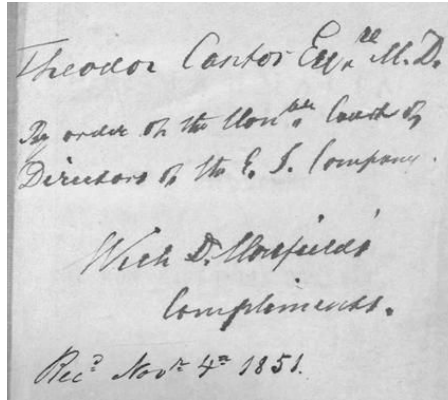 Theodor Cantor Esqre M.D.
By order of the Honble Court of
Directors of the E. I. Company.
With Dr. Horsfield's
Compliments.
Recd Novr 4th 1851.